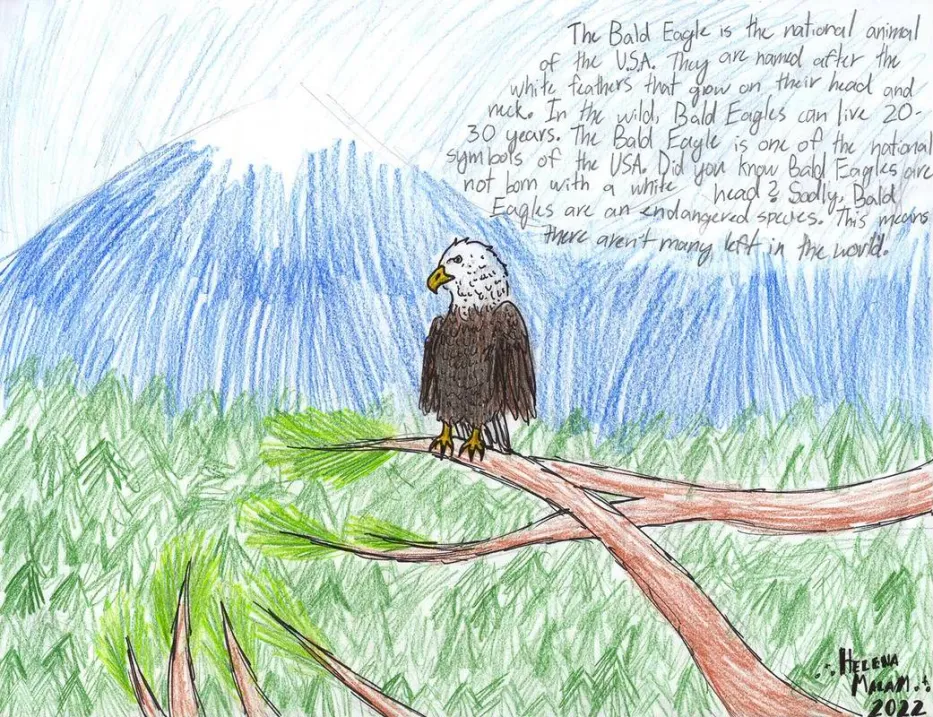 The Bald Eagle is the national animal
of the U.S.A. They are named after the
white feathers that grow on their head and
neck. In the wild, Bald Eagles can live 20-
30 years. The Bald Eagle is one of the national
symbols of the USA. Did you know Bald Eagles are
not born with a white head? Sadly, Bald
Eagles are an endangered species. This means
there aren't many left in the world.
HELENA
MALAM
2022